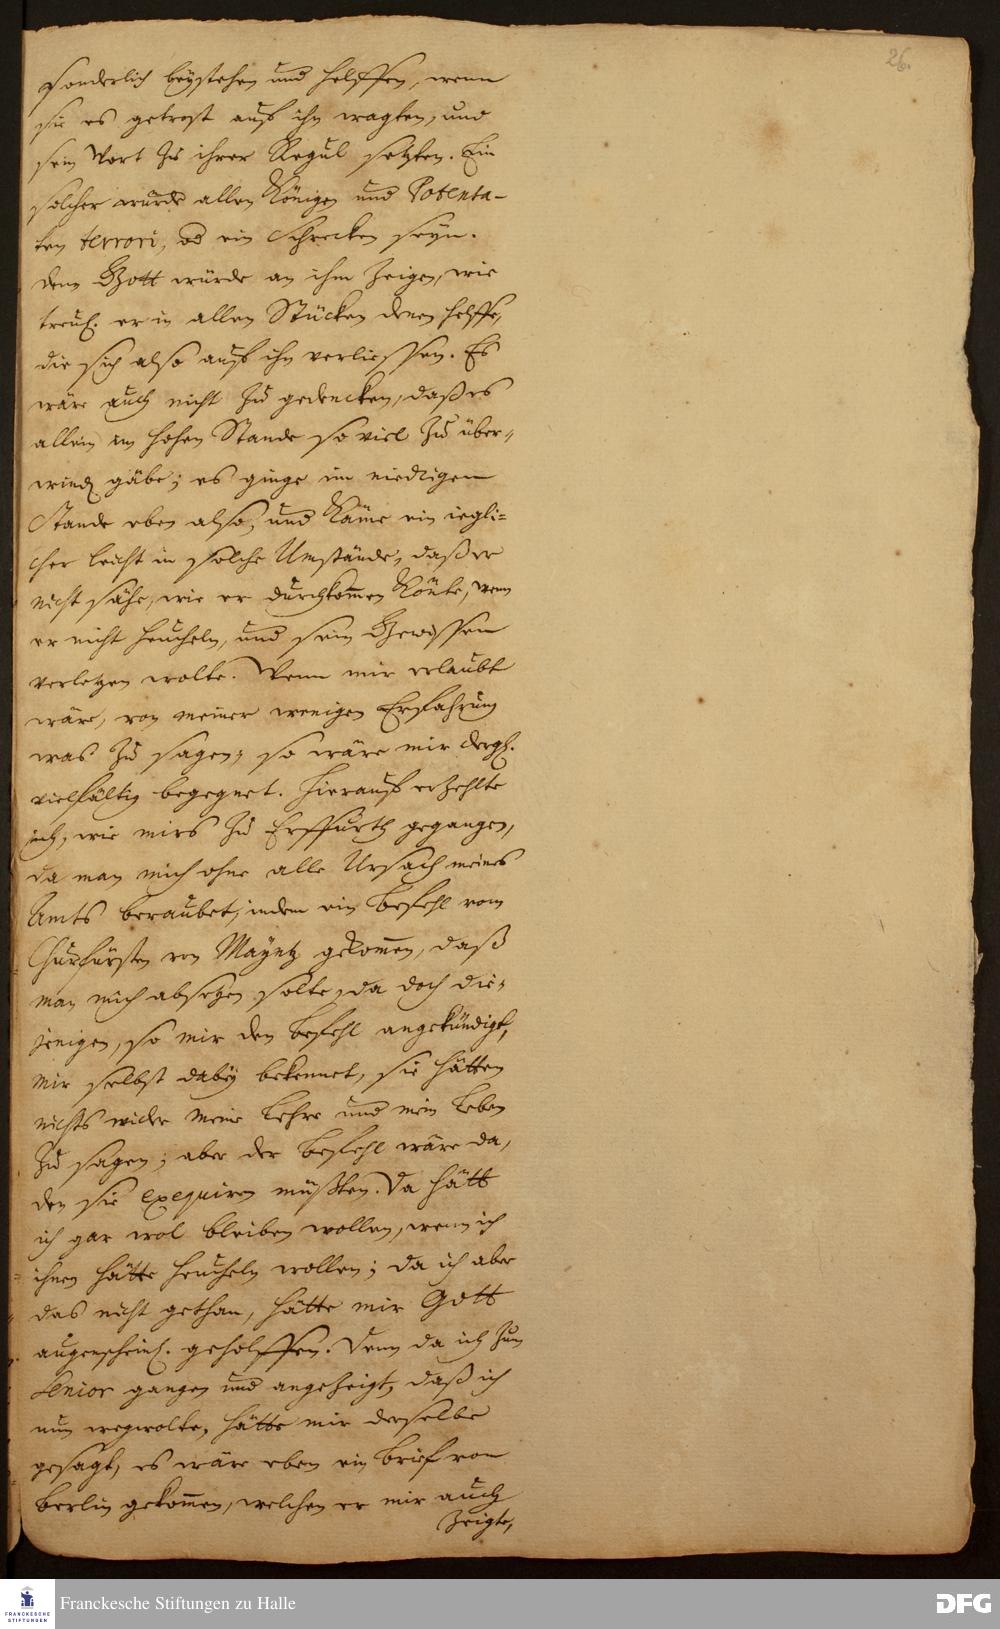 26.
sonderlich beystehen und helffen, wenn
sie es getrost auf ihn wagten, und
sein Wort zu ihrer Regul setzten. Ein
solcher würde allen Königen und Potenta-
ten terrori, od ein Schrecken seyn.
denn Gott würde an ihm zeigen, wie
treul. er in allen Stücken denen helffe,
die sich also auf ihn verliessen. Es
wäre auch nicht zu gedencken, daß es
allein im hohen Stande so viel zu über-
wind gäbe; es ginge im niedrigem
Stande eben also, und käme ein iegli-
cher leicht in solche Umstände, daß er
nicht sähe, wie er durchkommen könte, wenn
er nicht heucheln, und sein Gewissen
verletzen wolte. Wenn mir erlaubt
wäre, von meiner wenigen Erfahrung
was zu sagen, so wäre mir dergl.
vielfältig begegnet. Hierauf erzehlte
ich, wie mirs zu Erffurth gegangen,
da man mich ohne alle Ursach meines
Amts beraubet, indem ein Befehl vom
Churfürsten von Mayntz gekommen, daß
man mich absetzen solte, da doch die-
jenigen, so mir den Befehl angekündigt,
mir selbst dabey bekennet, sie hätten
nichts wider meine Lehre und mein Leben
zu sagen; aber der Befehl wäre da,
den sie exequiren müßten. Da hätt
ich gar wol bleiben wollen, wenn ich
ihnen hätte heucheln wollen; da ich aber
das nicht gethan, hätte mir Gott
augenscheinl. geholffen. Denn da ich zum
Senior gangen und angezeigt, daß ich
nun wegwolte, hätte mir derselbe
gesagt, es wäre eben ein Brief von
Berlin gekommen, welchen er mir auch
zeigte,
FRANCKESCHE
STIFTUNGEN
Franckesche Stiftungen zu Halle
DFG